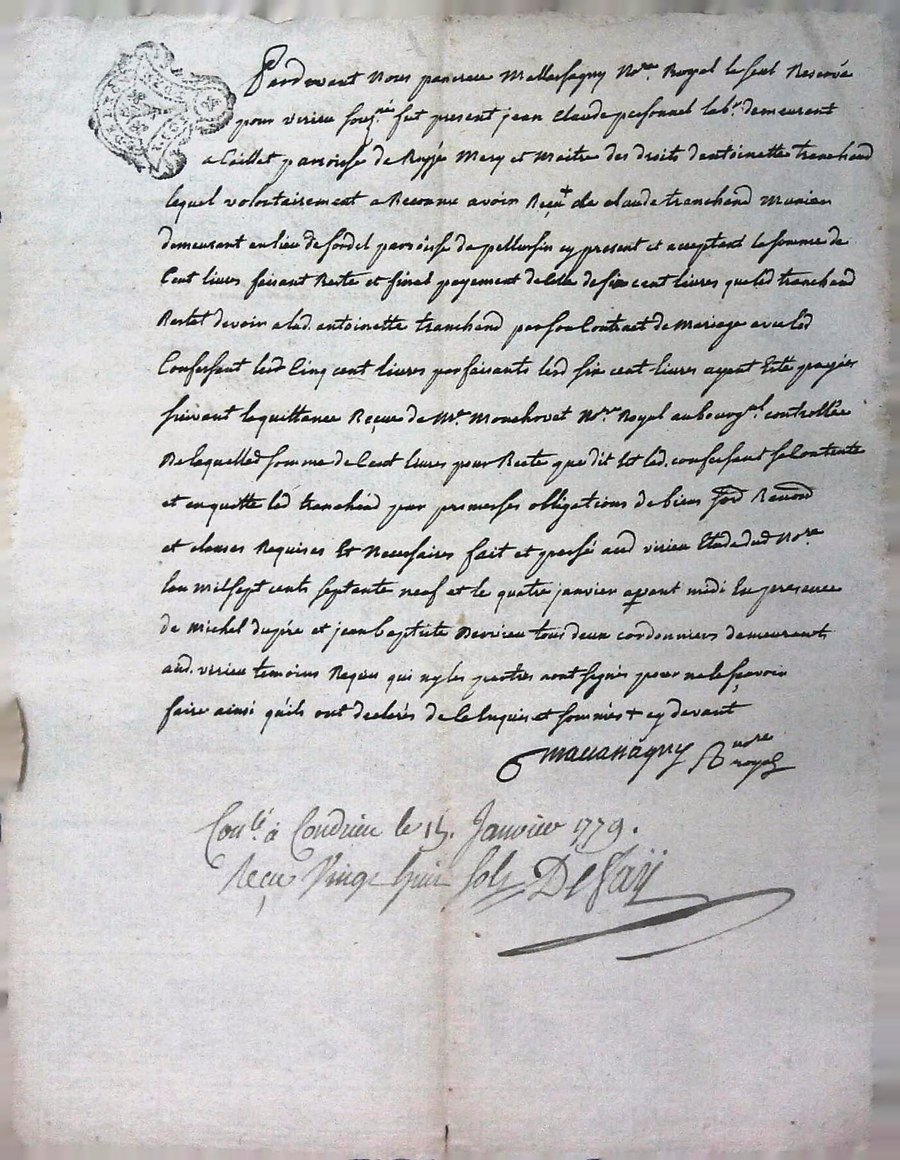 Pardevant Nous pancrace Mallassagny No.re Royal le seul Reservé
pour verieu souz.né fut present jean Claude personnel lab.r demeurant
a Caillet paroisse de Mary et Maitre des droits dantoinette tranchand
lequel volontairement a Reconnu avoir Reçu de claude tranchand Munier
demeurant au lieu de paroisse de pellussin cy present et acceptant la somme de
Cent livres faisant Reste et final payement de celle de six cent livres que led tranchand
Restet devoir a lad. antoinette tranchand par son Contract de Mariage avec led
Confessant lesd Cinq cent livres parfaisants lesd six cent livres ayant Esté payées
suivant la quittance Reçue de M.e Monchovet No.re Royal au bourg controllée
De laquelle somme de Cent livres pour Reste que dit Est led. confessant se Contente
et en quitte led tranchand par promesses obligations de biens
et clauses Requises Et Necessaires fait et passé aud virieu Etude dud No.re
lan mil sept cents septante neuf et le quatre janvier avant midi En presence
de Michel dupré et jean baptiste Dervieu tous deux cordonniers demeurants
aud. verieu temoins Requis qui ny les parties nont signés pour ne le sçavoir
faire ainsi quils ont declarés de ce Enquis et sommés + cy devant
nore
royal
Con.lé à Condrieu le 15. Janvier 1779.
Reçu Vingt huit sols